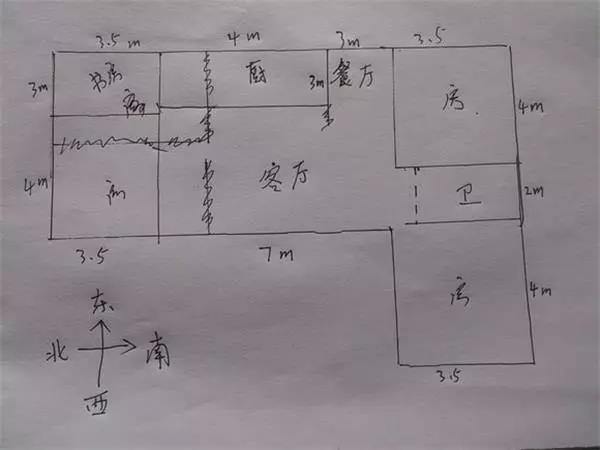 3.5 m 4m 3m 3.5
3m 书房 厨 3m 餐厅 房 4m
4m 客厅 卫 2m
房 4m
3.5 7m
3.5
东
北 南
西